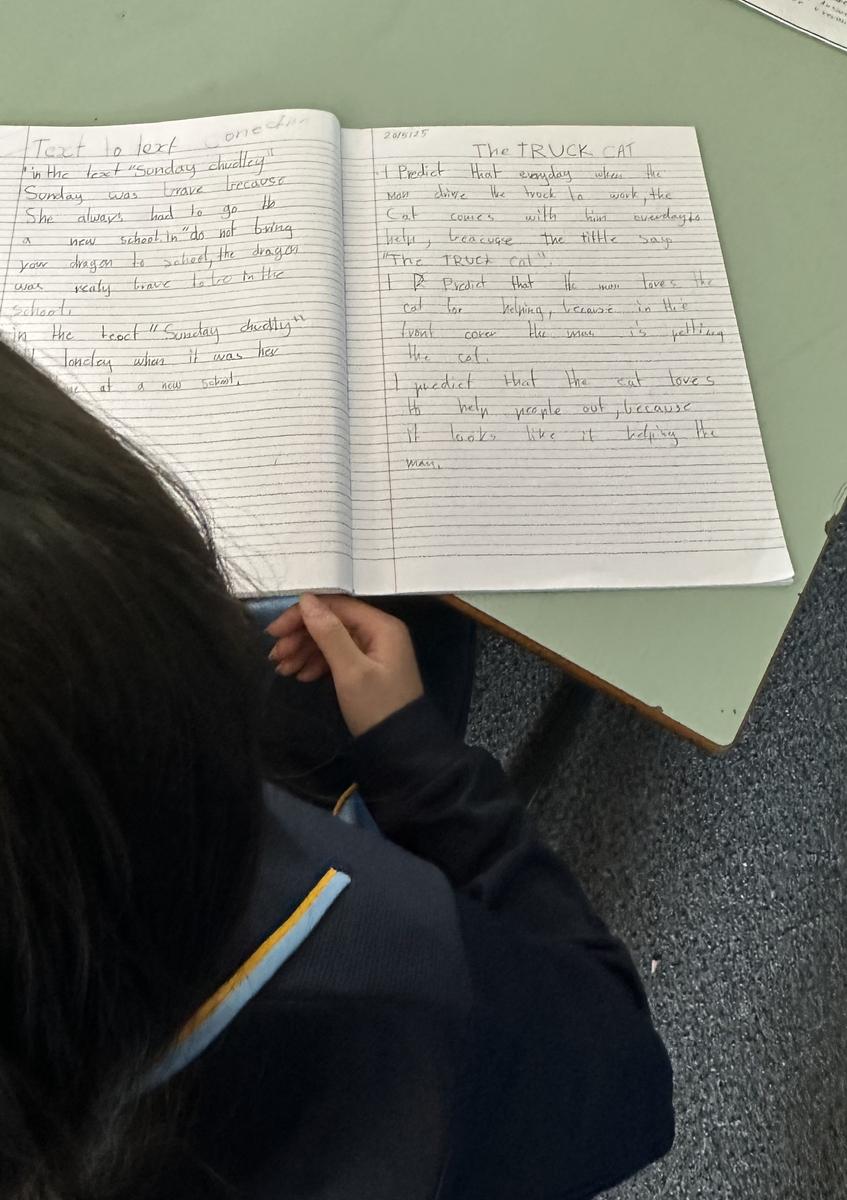 Text to text conection
"in the text "Sunday chudley"
Sunday was brave because
She always had to go to
a new school. In "do not bring
your dragon to school, the dragon
was realy brave to be in the
school.
in the teoct "Sunday chudly"
lonely when it was her
at a new school.
20/5/25
The TRUCK CAT
I Predict that everyday when the
Man drive the truck to work, the
Cat comes with him everday to
help, beacuse the tittle say
"The TRUCK Cat".
I Predict that the man loves the
cat for helping, because in the
front cover the man is petting
the cat.
I predict that the cat loves
to help people out, because
it looks like it helping the
man.